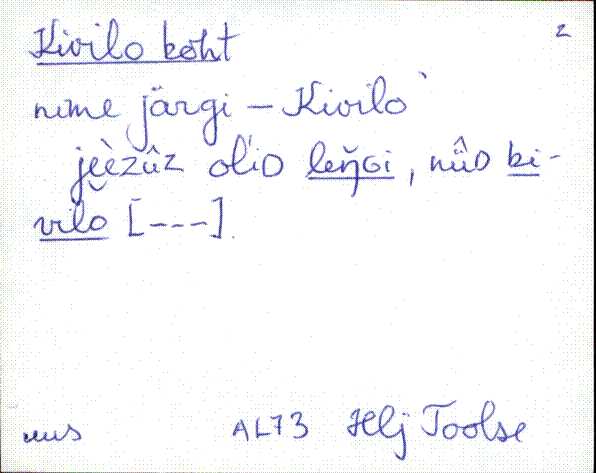 Kivilo koht
2
nime järgi – Kivilo`
jeèzûz ol'ıᴅ leŋ̆ɢi, nüᴅ ki-
vilŏ [---].
mus
AL73 Helj Toolse